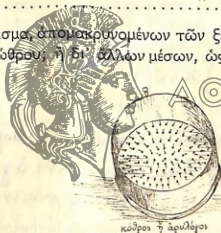 σμα, ἀπομακρυνομένων τῶν ξ
ώθρου; ἢ δι' ἄλλων μέσων, ὡς
ΑΘ
κόθρος ἢ ἀρυλόγος